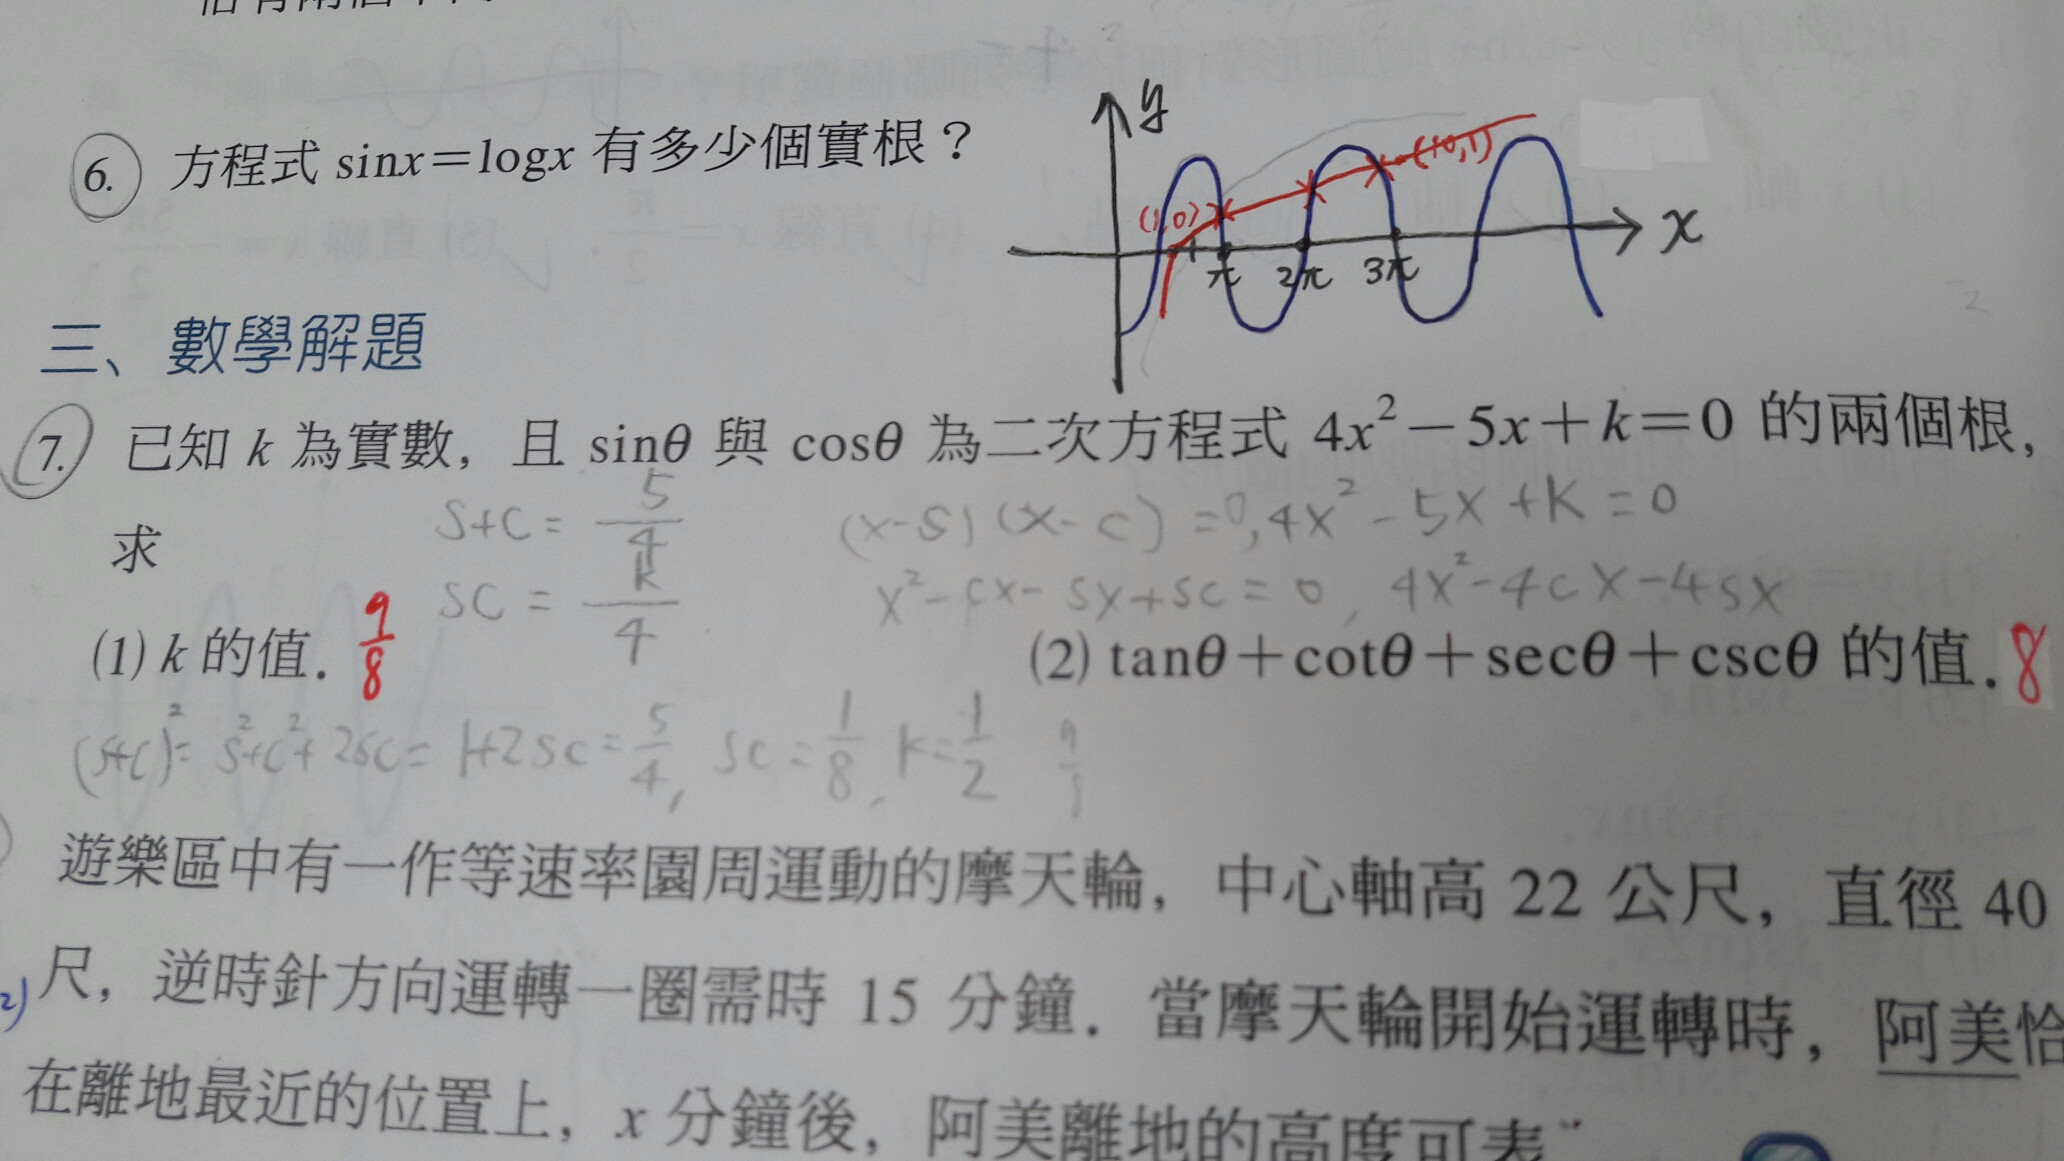 6. 方程式 sinx=logx 有多少個實根？
y
(1,0)
(10,1)
x
1 π 2π 3π
三、數學解題
7. 已知 k 為實數，且 sinθ 與 cosθ 為二次方程式 4x²−5x+k=0 的兩個根，
求
S+C = 5/4
(x-S)(x-C)=0, 4x²-5x+k=0
SC = k/4
x²-cx-sx+sc=0, 4x²-4cx-4sx
(1) k 的值． 9/8
(2) tanθ+cotθ+secθ+cscθ 的值． 8
(S+C)² = S²+C²+2SC = 1+2SC = 5/4, SC = 1/8, K = 1/2 9/8
遊樂區中有一作等速率圓周運動的摩天輪，中心軸高 22 公尺，直徑 40
2)
尺，逆時針方向運轉一圈需時 15 分鐘．當摩天輪開始運轉時，阿美恰
在離地最近的位置上，x 分鐘後，阿美離地的高度可表